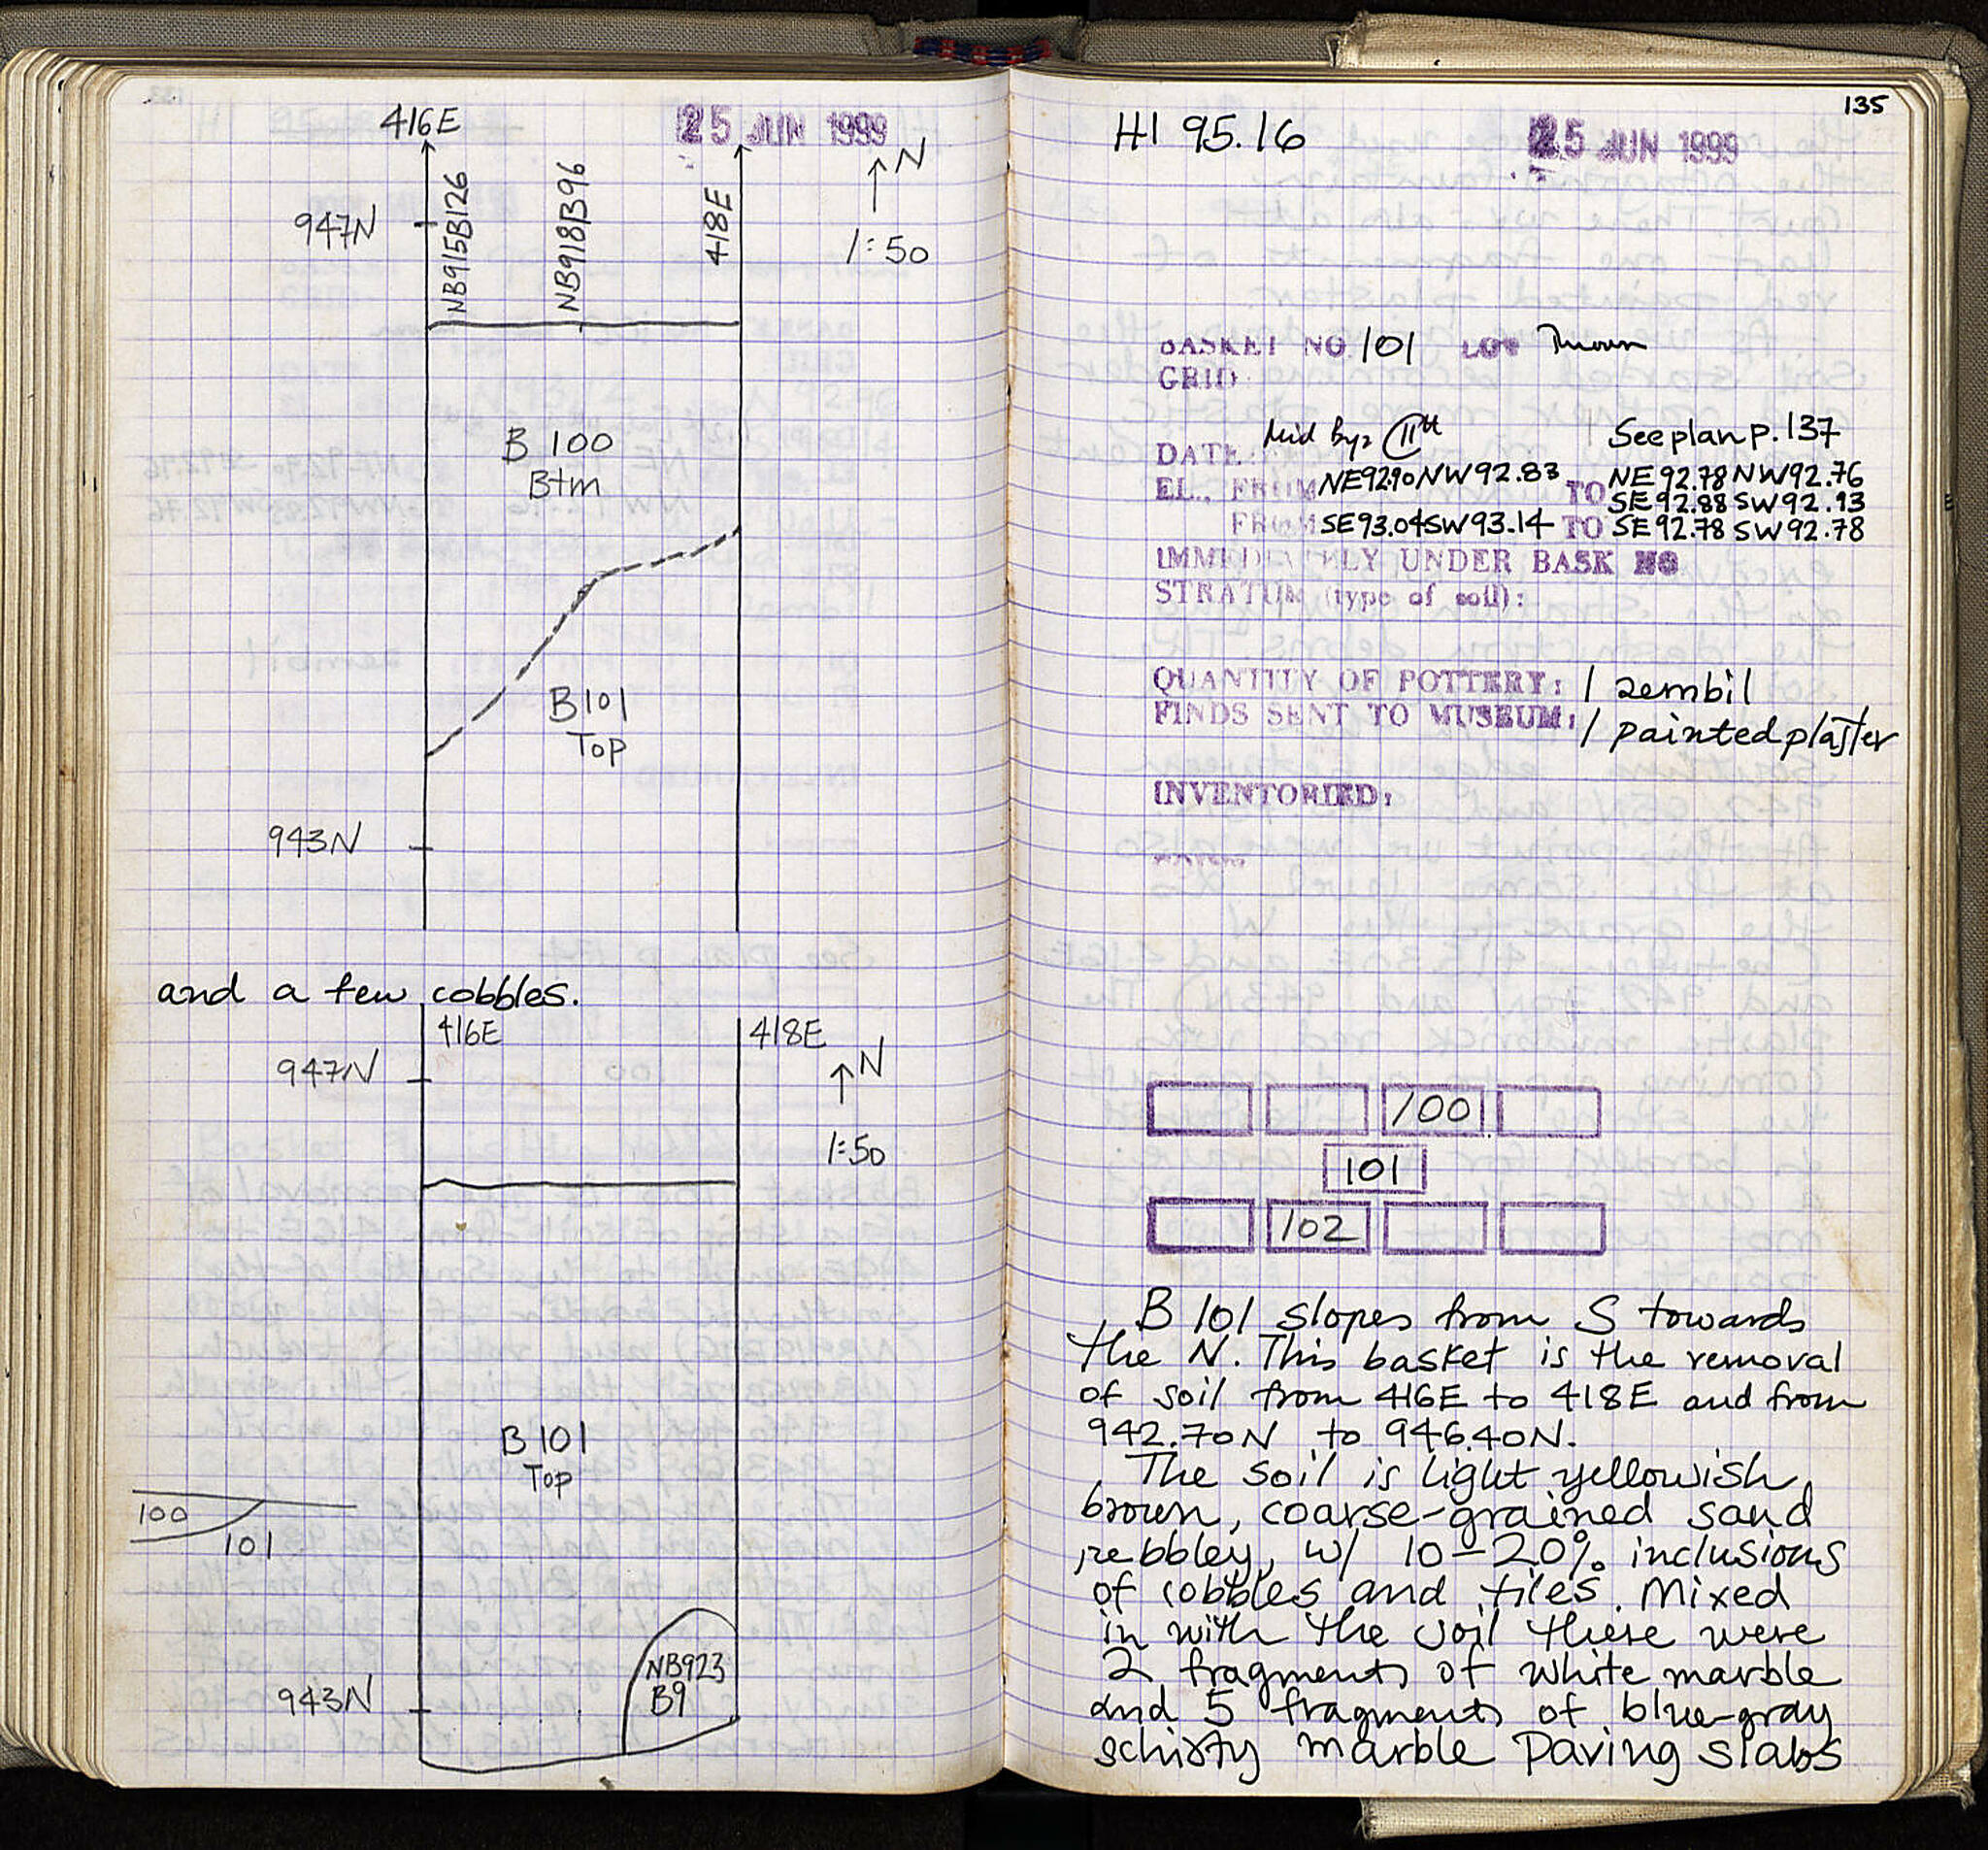 416E
25 JUN 1999
N
947N
NB915B126
NB918B96
418E
1:50
B 100
Btm
B 101
Top
943N
and a few cobbles.
416E
418E
N
947N
1:50
B 101
Top
100
101
NB923
B9
943N
135
HI 95.16
25 JUN 1999
BASKET NO 101 LOT
GRID
Mid Byz
See plan p. 137
DATE
EL., FROM NE92.90 NW92.83 TO NE92.78 NW92.76
SE92.88 SW92.93
FROM SE93.04 SW93.14 TO SE92.78 SW92.78
IMMEDIATELY UNDER BASK NO
STRATUM (type of soil):
QUANTITY OF POTTERY: 1 zembil
FINDS SENT TO MUSEUM: 1 painted plaster
INVENTORIED:
100
101
102
B 101 slopes from S towards
the N. This basket is the removal
of soil from 416E to 418E and from
942.70N to 946.40N.
The soil is light yellowish
brown, coarse-grained sand
pebbley, w/ 10-20% inclusions
of cobbles and tiles. Mixed
in with the soil there were
2 fragments of white marble
and 5 fragments of blue-gray
schisty marble paving slabs